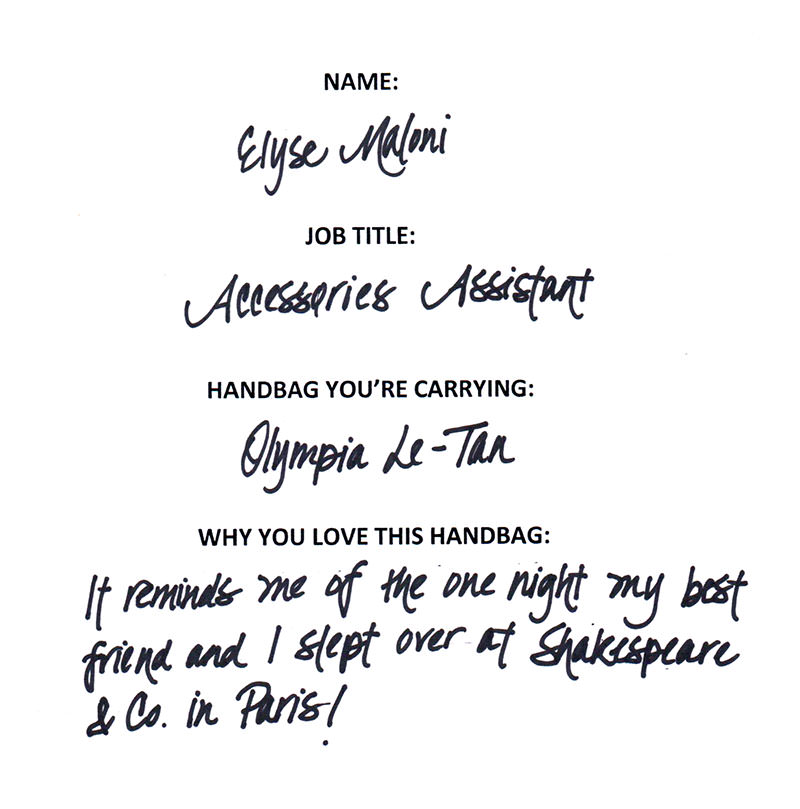 NAME:
Elyse Maloni
JOB TITLE:
Accessories Assistant
HANDBAG YOU'RE CARRYING:
Olympia Le-Tan
WHY YOU LOVE THIS HANDBAG:
It reminds me of the one night my best
friend and I slept over at Shakespeare
& Co. in Paris!